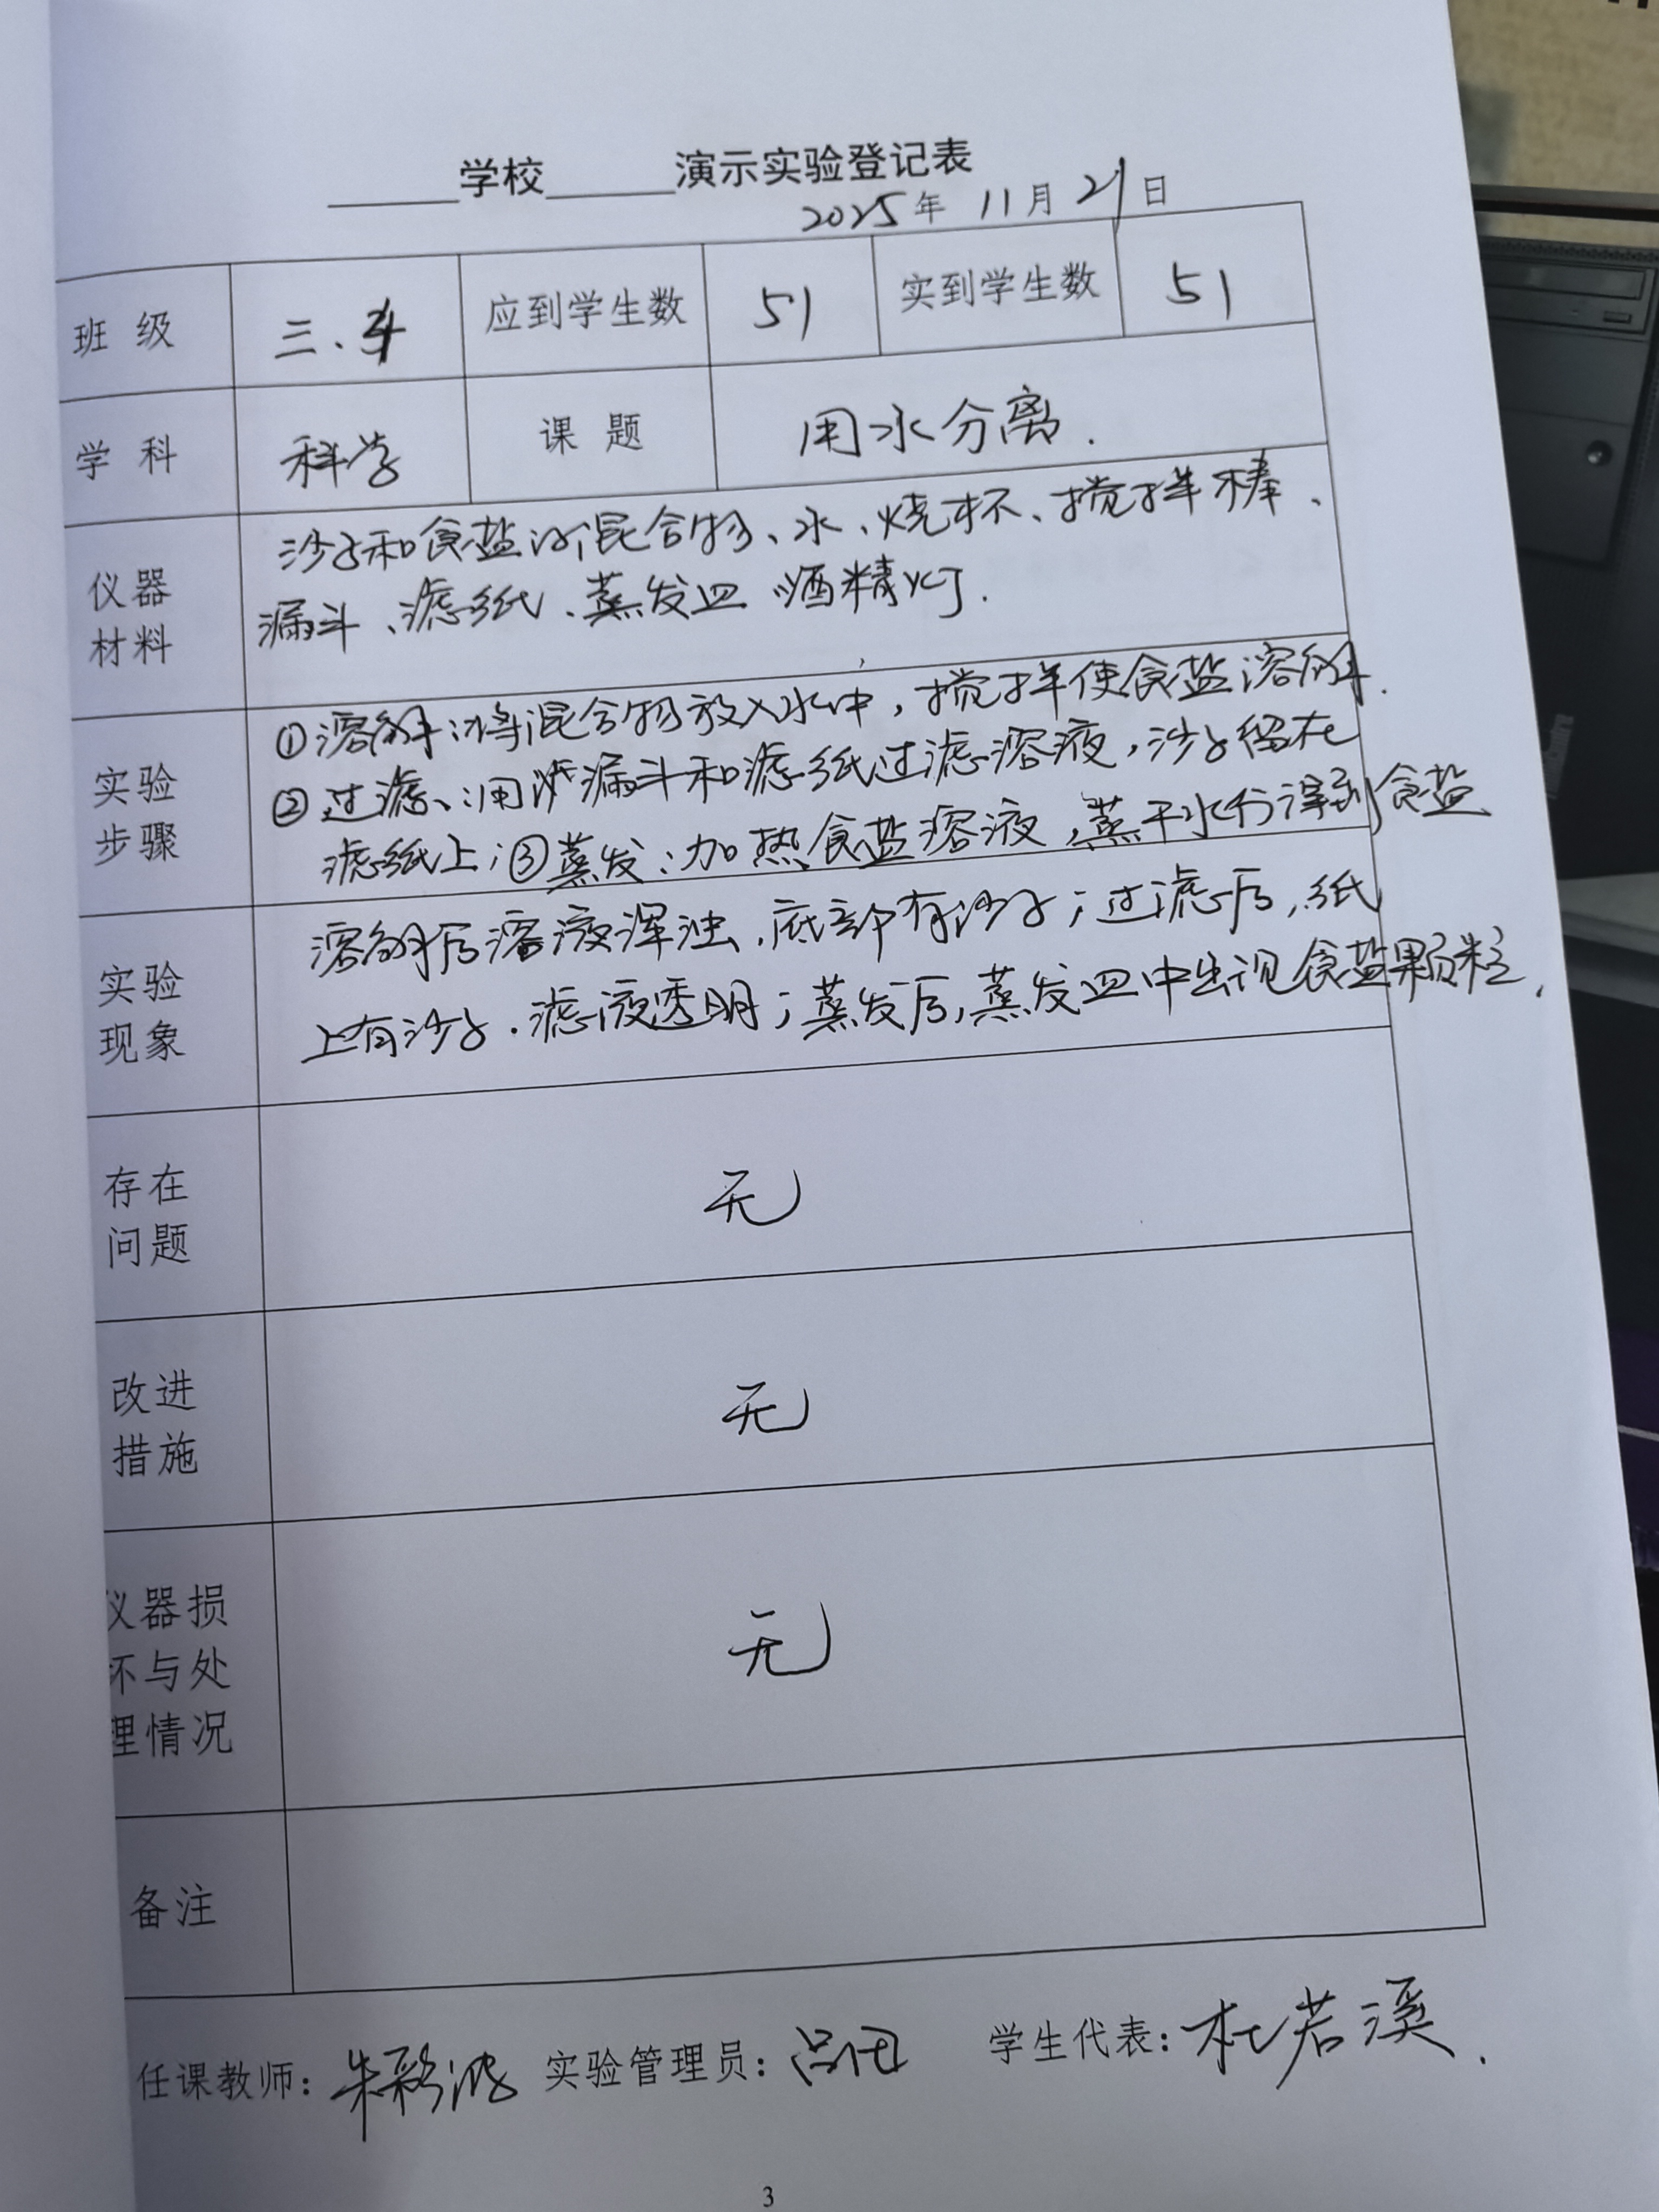 ______学校______演示实验登记表
2025年 11月 21日
班 级 三.4 应到学生数 51 实到学生数 51
学 科 科学 课 题 用水分离.
仪器
材料
沙子和食盐的混合物、水、烧杯、搅拌棒、
漏斗、滤纸、蒸发皿 酒精灯.
实验
步骤
①溶解:将混合物放入水中，搅拌使食盐溶解.
②过滤:用漏斗和滤纸过滤溶液，沙子留在
滤纸上;③蒸发:加热食盐溶液，蒸干水分得到食盐
实验
现象
溶解后溶液浑浊，底部有沙子;过滤后，纸
上有沙子.滤液透明;蒸发后,蒸发皿中出现食盐颗粒.
存在
问题
无
改进
措施
无
仪器损
坏与处
理情况
无
备注
任课教师: 实验管理员: 学生代表:杜若溪.
3